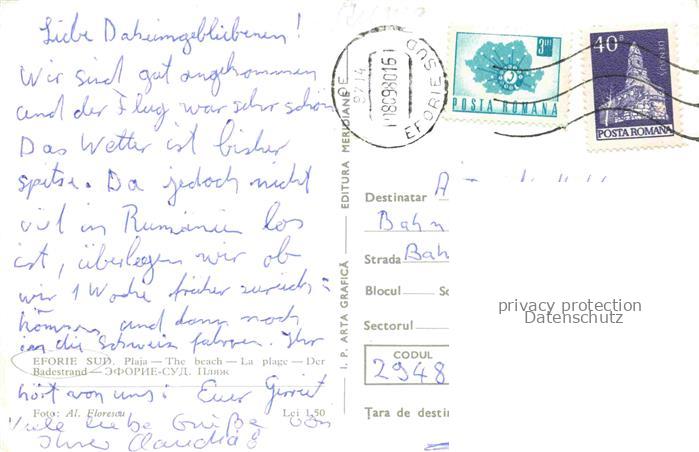 Liebe Daheimgebliebenen!
Wir sind gut angekommen
und der Flug war sehr schön
Das Wetter ist bisher
spitze. Da jedoch nicht
viel in Rumänien los
ist, überlegen wir ob
wir 1 Woche früher zurück=
kommen und dann noch
in die Schweiz fahren. Ihr
EFORIE SUD. Plaja — The beach — La plage — Der
Badestrand — ЭФОРИЕ-СУД. Пляж
hört von uns! Euer Gerriet
Foto: Al. Florescu Lei 1,50
Viele liebe Grüße von
Ihrer Claudia
I. P. ARTA GRAFICĂ — EDITURA MERIDIANE
EFORIE SUD
180980161
3 LEI
POSTA ROMANA
40B
DENSUS
POSTA ROMANA
Destinatar
Bahn
Strada Bah
Blocul
Sectorul
CODUL
2948
Țara de destin
privacy protection
Datenschutz